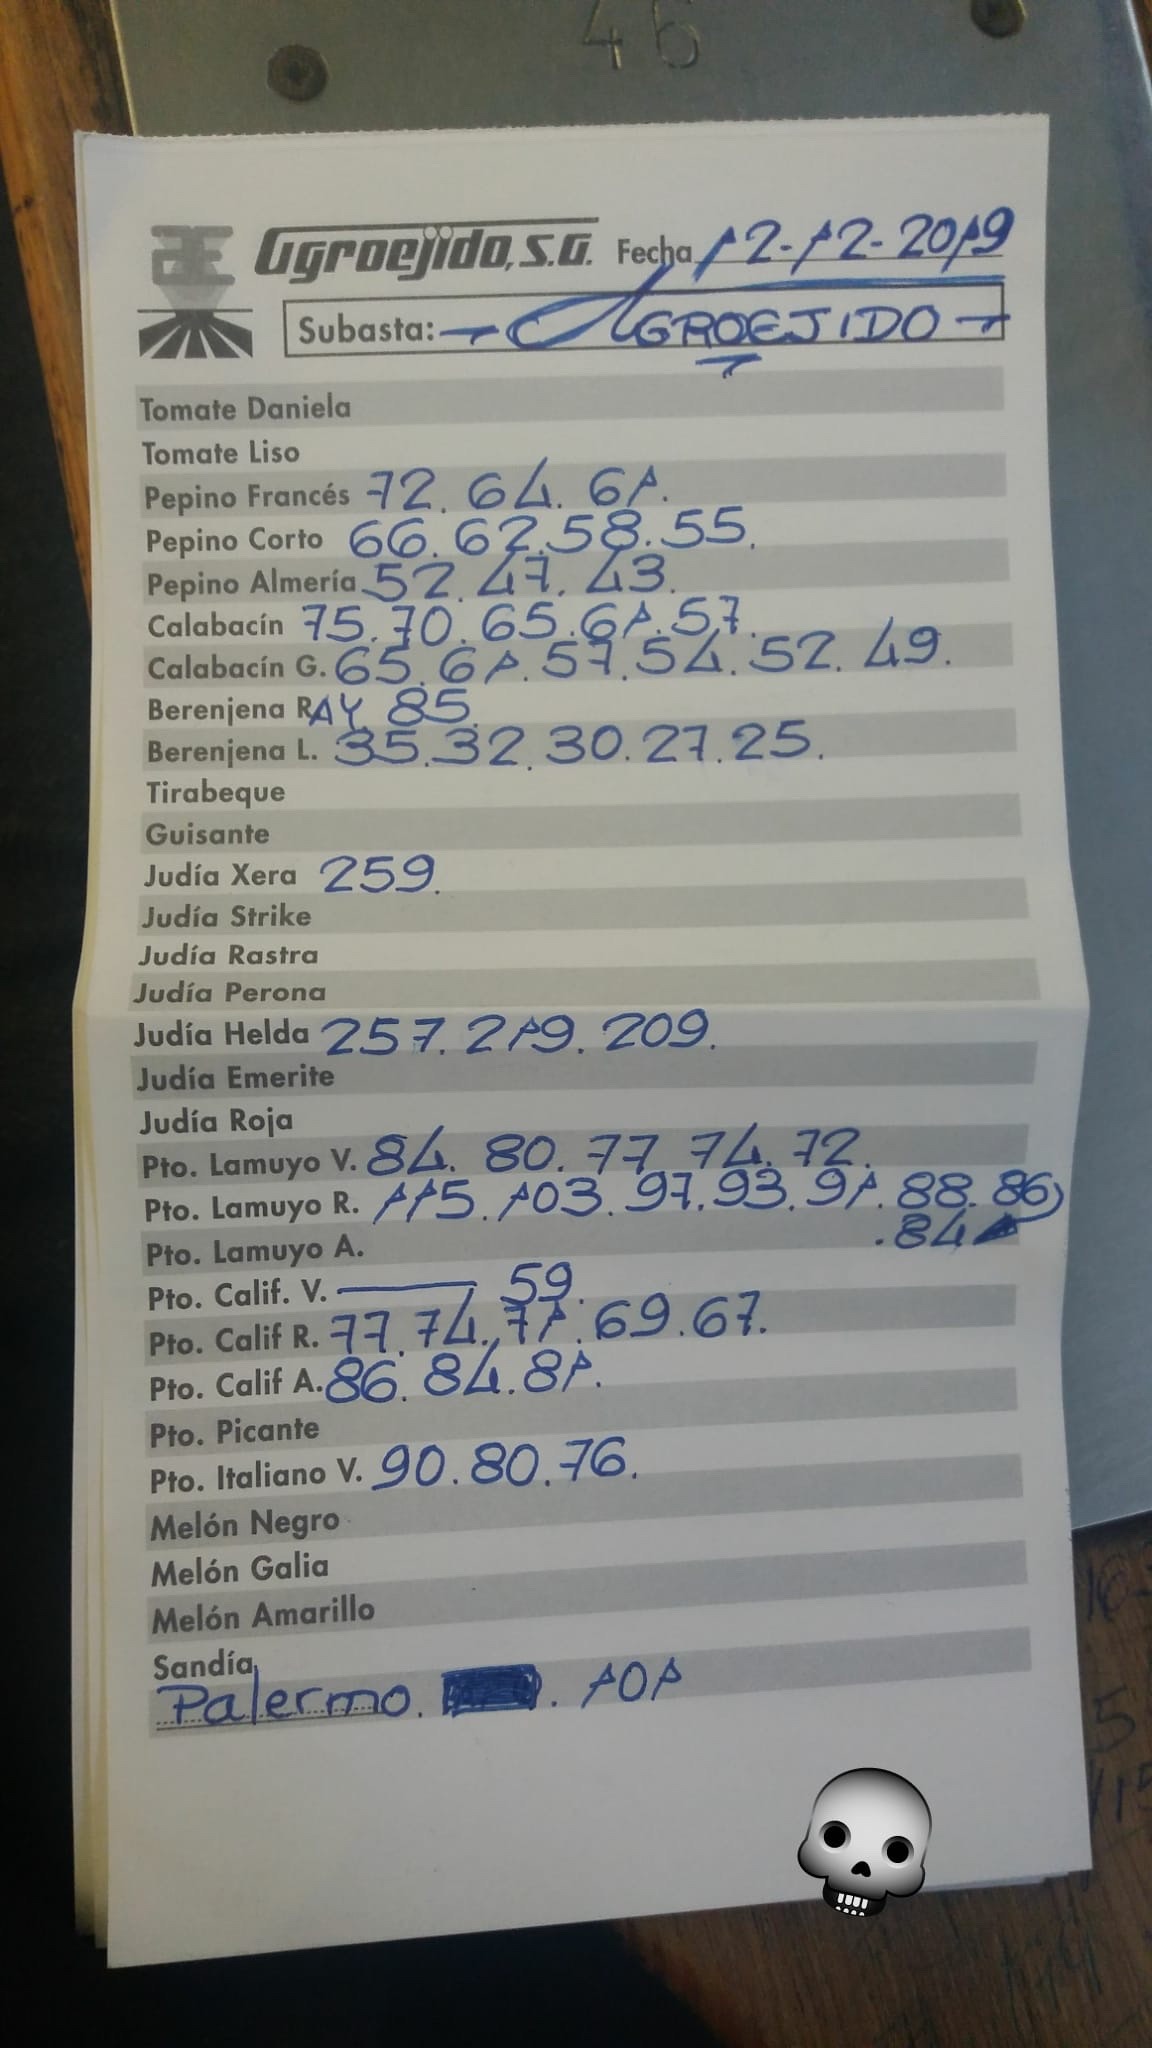 46
Agroejido, S.A. Fecha 12-12-2019
Subasta: AGROEJIDO
Tomate Daniela
Tomate Liso
Pepino Francés 72. 64. 61.
Pepino Corto 66. 62. 58. 55.
Pepino Almería 52. 47. 43.
Calabacín 75. 70. 65. 61. 57.
Calabacín G. 65. 61. 57. 54. 52. 49.
Berenjena RAY 85.
Berenjena L. 35. 32. 30. 27. 25.
Tirabeque
Guisante
Judía Xera 259.
Judía Strike
Judía Rastra
Judía Perona
Judía Helda 257. 219. 209.
Judía Emerite
Judía Roja
Pto. Lamuyo V. 84. 80. 77 74. 72.
Pto. Lamuyo R. 115. 103. 97. 93. 91. 88. 86
.84
Pto. Lamuyo A.
Pto. Calif. V. 59.
Pto. Calif R. 77. 74. 71. 69. 67.
Pto. Calif A. 86. 84. 81.
Pto. Picante
Pto. Italiano V. 90. 80. 76.
Melón Negro
Melón Galia
Melón Amarillo
Sandía
Palermo. . 101